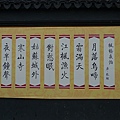 楓橋夜泊
月落烏啼
霜滿天
江楓漁火
對愁眠
姑蘇城外
寒山寺
夜半鐘聲